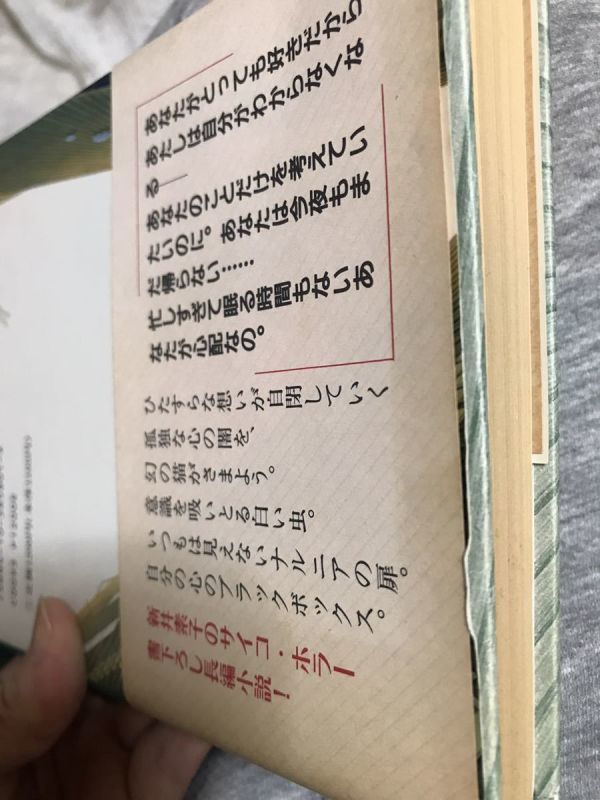 あなたがとっても好きだから
あたしは自分がわからなくな
る──
あなたのことだけを考えてい
たいのに。あなたは今夜もま
だ帰らない……
忙しすぎて眠る時間もないあ
なたが心配なの。
ひたすらな想いが自閉していく
孤独な心の闇を、
幻の猫がさまよう。
意識を吸いとる白い虫。
いつもは見えないナルニアの扉。
自分の心のブラックボックス。
新井素子のサイコ・ホラー
書下ろし長編小説！